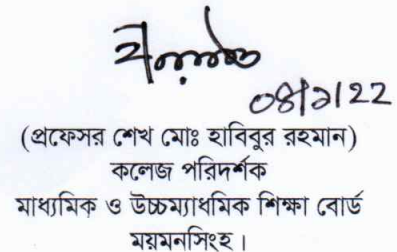 ০৪/১/২২
(প্রফেসর শেখ মোঃ হাবিবুর রহমান)
কলেজ পরিদর্শক
মাধ্যমিক ও উচ্চম্যাধমিক শিক্ষা বোর্ড
ময়মনসিংহ।